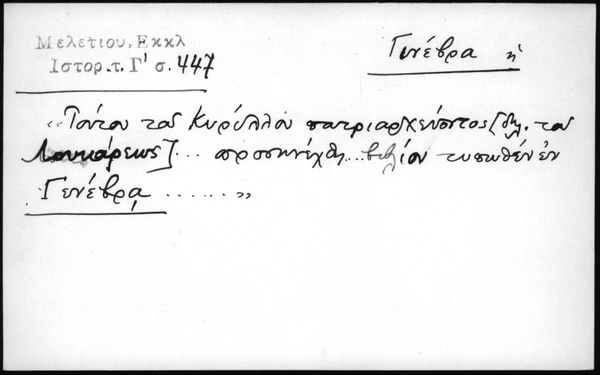 Μελετιου, Εκκλ
Ιστορ.τ. Γ' σ. 447
Γενέβρα ἡ
"Τούτου τοῦ Κυρίλλου πατριαρχεύοντος [δηλ. τοῦ
Λουκάρεως] ... προσηνέχθη ... βιβλίον τυπωθὲν ἐν
Γενέβρᾳ ...... "